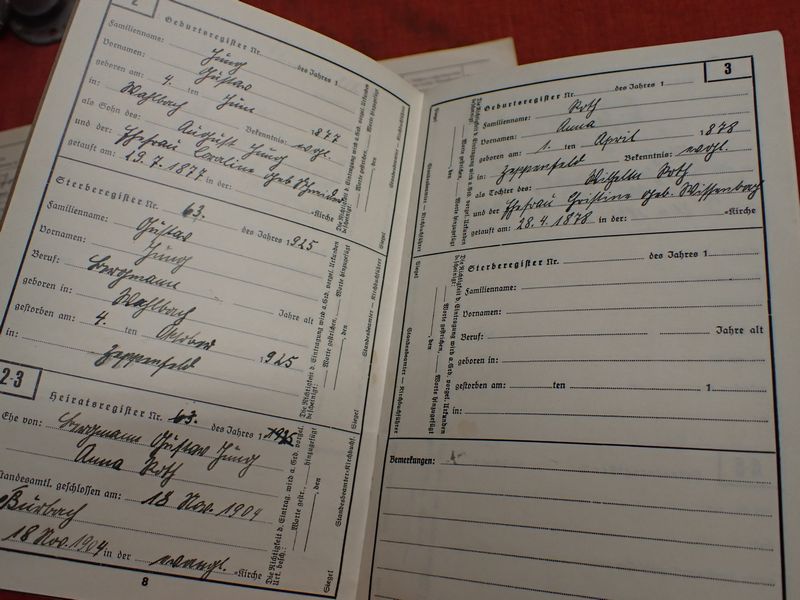 2
Geburtsregister Nr. des Jahres 1
Familienname: Jung
Vornamen: Gustav
geboren am: 4. ten Juni 1877
in: Wahlbach Bekenntnis: evgl.
als Sohn des: August Jung
und der: Ehefrau Caroline geb. Schneider
getauft am: 19.7.1877 in der: -Kirche
Sterberegister Nr. 63. des Jahres 1925
Familienname: Gustav
Vornamen: Jung
Beruf: Bergmann Jahre alt
geboren in: Wahlbach
gestorben am: 4. ten Oktober 1925
in: Zeppenfeld
2-3
Heiratsregister Nr. 63. des Jahres 1925
Ehe von: Bergmann Gustav Jung
Anna Roth
standesamtl. geschlossen am: 18 Nov. 1904
Burbach
18 Nov. 1904 in der evangl. -Kirche
8
3
Geburtsregister Nr. des Jahres 1
Familienname: Roth
Vornamen: Anna
geboren am: 1. ten April 1878
in: Zeppenfeld Bekenntnis: evgl.
als Tochter des: Wilhelm Roth
und der Ehefrau Christine geb. Wissenbach
getauft am: 28.4.1878 in der: -Kirche
Sterberegister Nr. des Jahres 1
Familienname:
Vornamen:
Beruf: Jahre alt
geboren in:
gestorben am: ten 1
in:
Bemerkungen:
Siegel
Standesbeamter — Kirchbuchführer